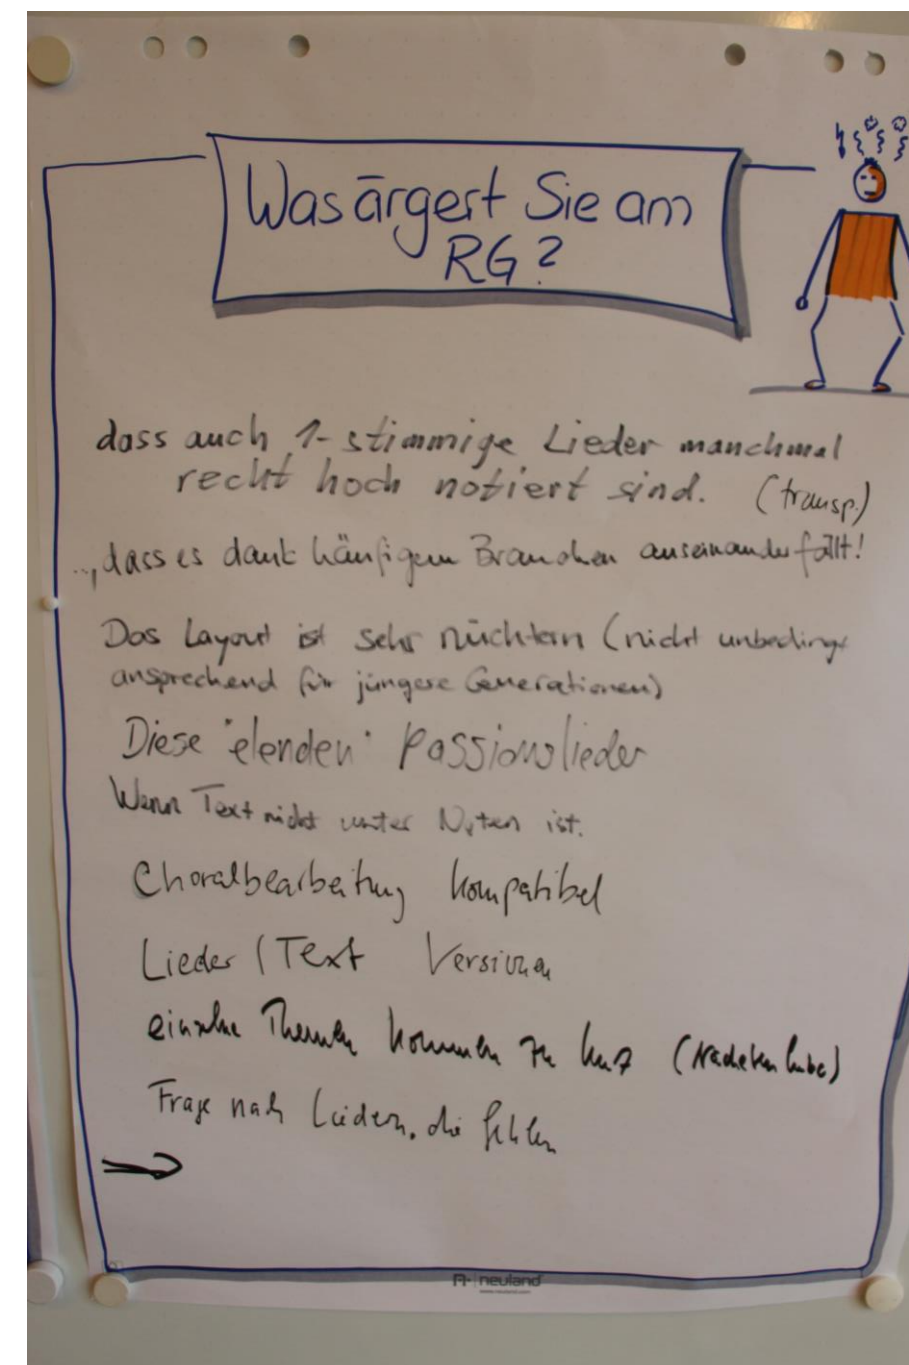 Was ärgert Sie am
RG?
dass auch 1-stimmige Lieder manchmal
recht hoch notiert sind. (transp.)
..., dass es dank häufigem Brauchen auseinanderfällt!
Das Layout ist sehr nüchtern (nicht unbedingt
ansprechend für jüngere Generationen)
Diese "elenden" Passionslieder
Wenn Text nicht unter Noten ist.
Choralbearbeitung kompatibel
Lieder / Text Versionen
einzelne Themen kommen zu kurz (Nächstenliebe)
Frage nach Liedern, die fehlen
neuland
www.neuland.com